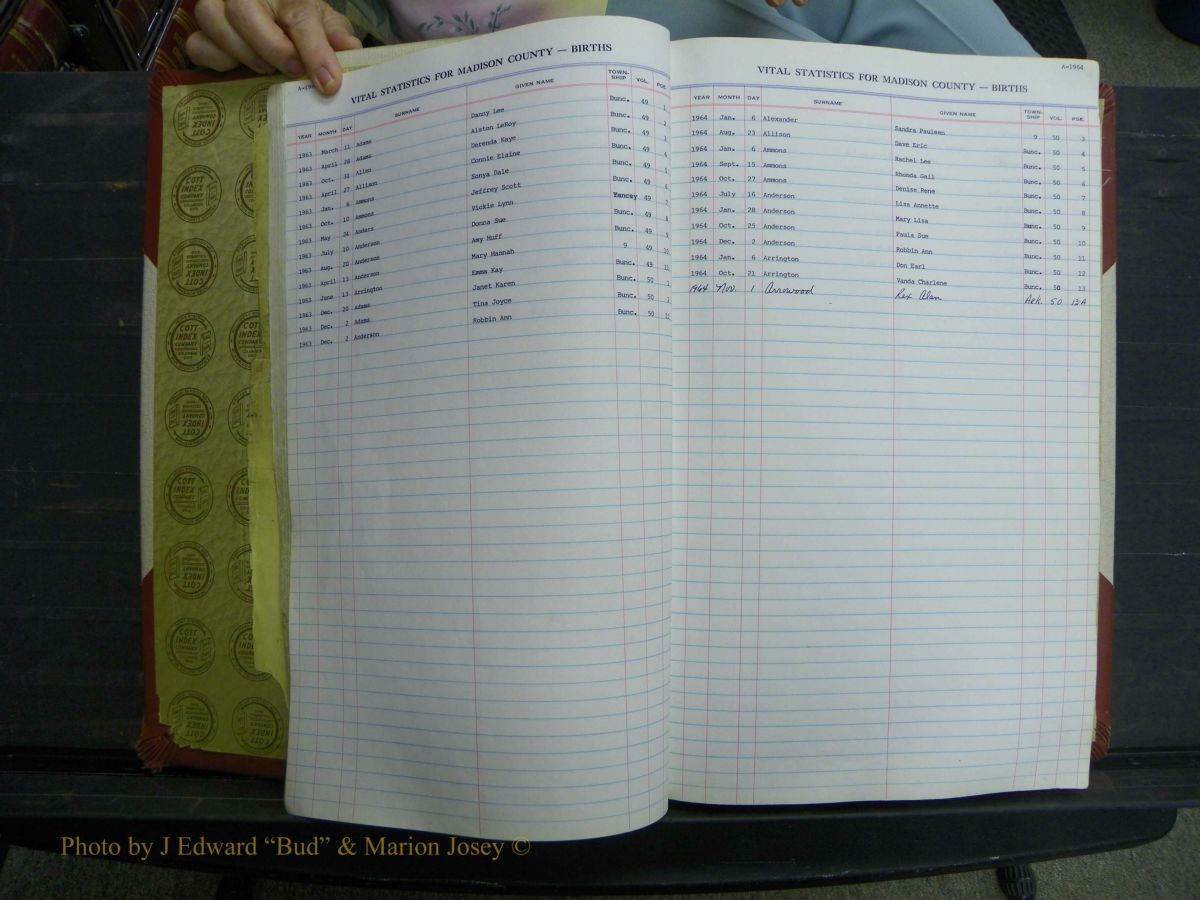 A-196
VITAL STATISTICS FOR MADISON COUNTY — BIRTHS
YEAR MONTH DAY SURNAME GIVEN NAME TOWN-SHIP VOL. PGE.
1963 March 11 Adams Danny Lee Bunc. 49 1
1963 April 28 Adams Alston LeRoy Bunc. 49 2
1963 Oct. 31 Allen Derenda Kaye Bunc. 49 3
1963 April 27 Allison Connie Elaine Bunc. 49 4
1963 Jan. 6 Ammons Sonya Dale Bunc. 49 5
1963 Oct. 10 Ammons Jeffrey Scott Bunc. 49 6
1963 May 24 Anders Vickie Lynn Yancey 49 7
1963 July 10 Anderson Donna Sue Bunc. 49 8
1963 Aug. 20 Anderson Amy Huff Bunc. 49 9
1963 April 13 Anderson Mary Hannah 9 49 10
1963 June 13 Arrington Emma Kay Bunc. 49 11
1963 Dec. 20 Adams Janet Karen Bunc. 50 1
1963 Dec. 2 Adams Tina Joyce Bunc. 50 2
1963 Dec. 2 Anderson Robbin Ann Bunc. 50 11
A-1964
VITAL STATISTICS FOR MADISON COUNTY — BIRTHS
YEAR MONTH DAY SURNAME GIVEN NAME TOWN-SHIP VOL. PGE.
1964 Jan. 6 Alexander Sandra Pauleen 9 50 3
1964 Aug. 23 Allison Dave Eric Bunc. 50 4
1964 Jan. 6 Ammons Rachel Lee Bunc. 50 5
1964 Sept. 15 Ammons Rhonda Gail Bunc. 50 6
1964 Oct. 27 Ammons Denise Rene Bunc. 50 7
1964 July 16 Anderson Lisa Annette Bunc. 50 8
1964 Jan. 28 Anderson Mary Lisa Bunc. 50 9
1964 Oct. 25 Anderson Paula Due Bunc. 50 10
1964 Dec. 2 Anderson Robbin Ann Bunc. 50 11
1964 Jan. 6 Arrington Don Earl Bunc. 50 12
1964 Oct. 21 Arrington Vanda Charlene Bunc. 50 13
1964 Nov. 1 Arrowood Rex Alan 50 13A
COTT INDEX COMPANY
Photo by J Edward “Bud” & Marion Josey ©